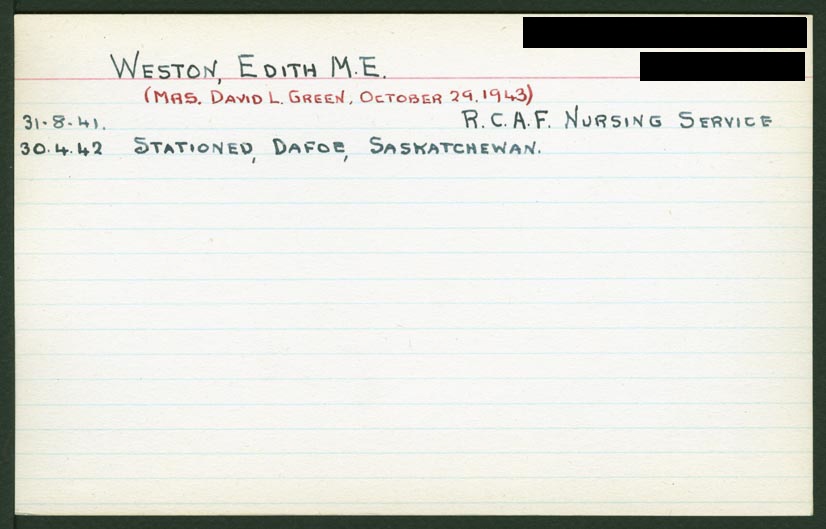 WESTON, EDITH M.E.
(MRS. DAVID L. GREEN, OCTOBER 29.1943)
31.8.41. R.C.A.F. NURSING SERVICE
30.4.42 STATIONED, DAFOE, SASKATCHEWAN.